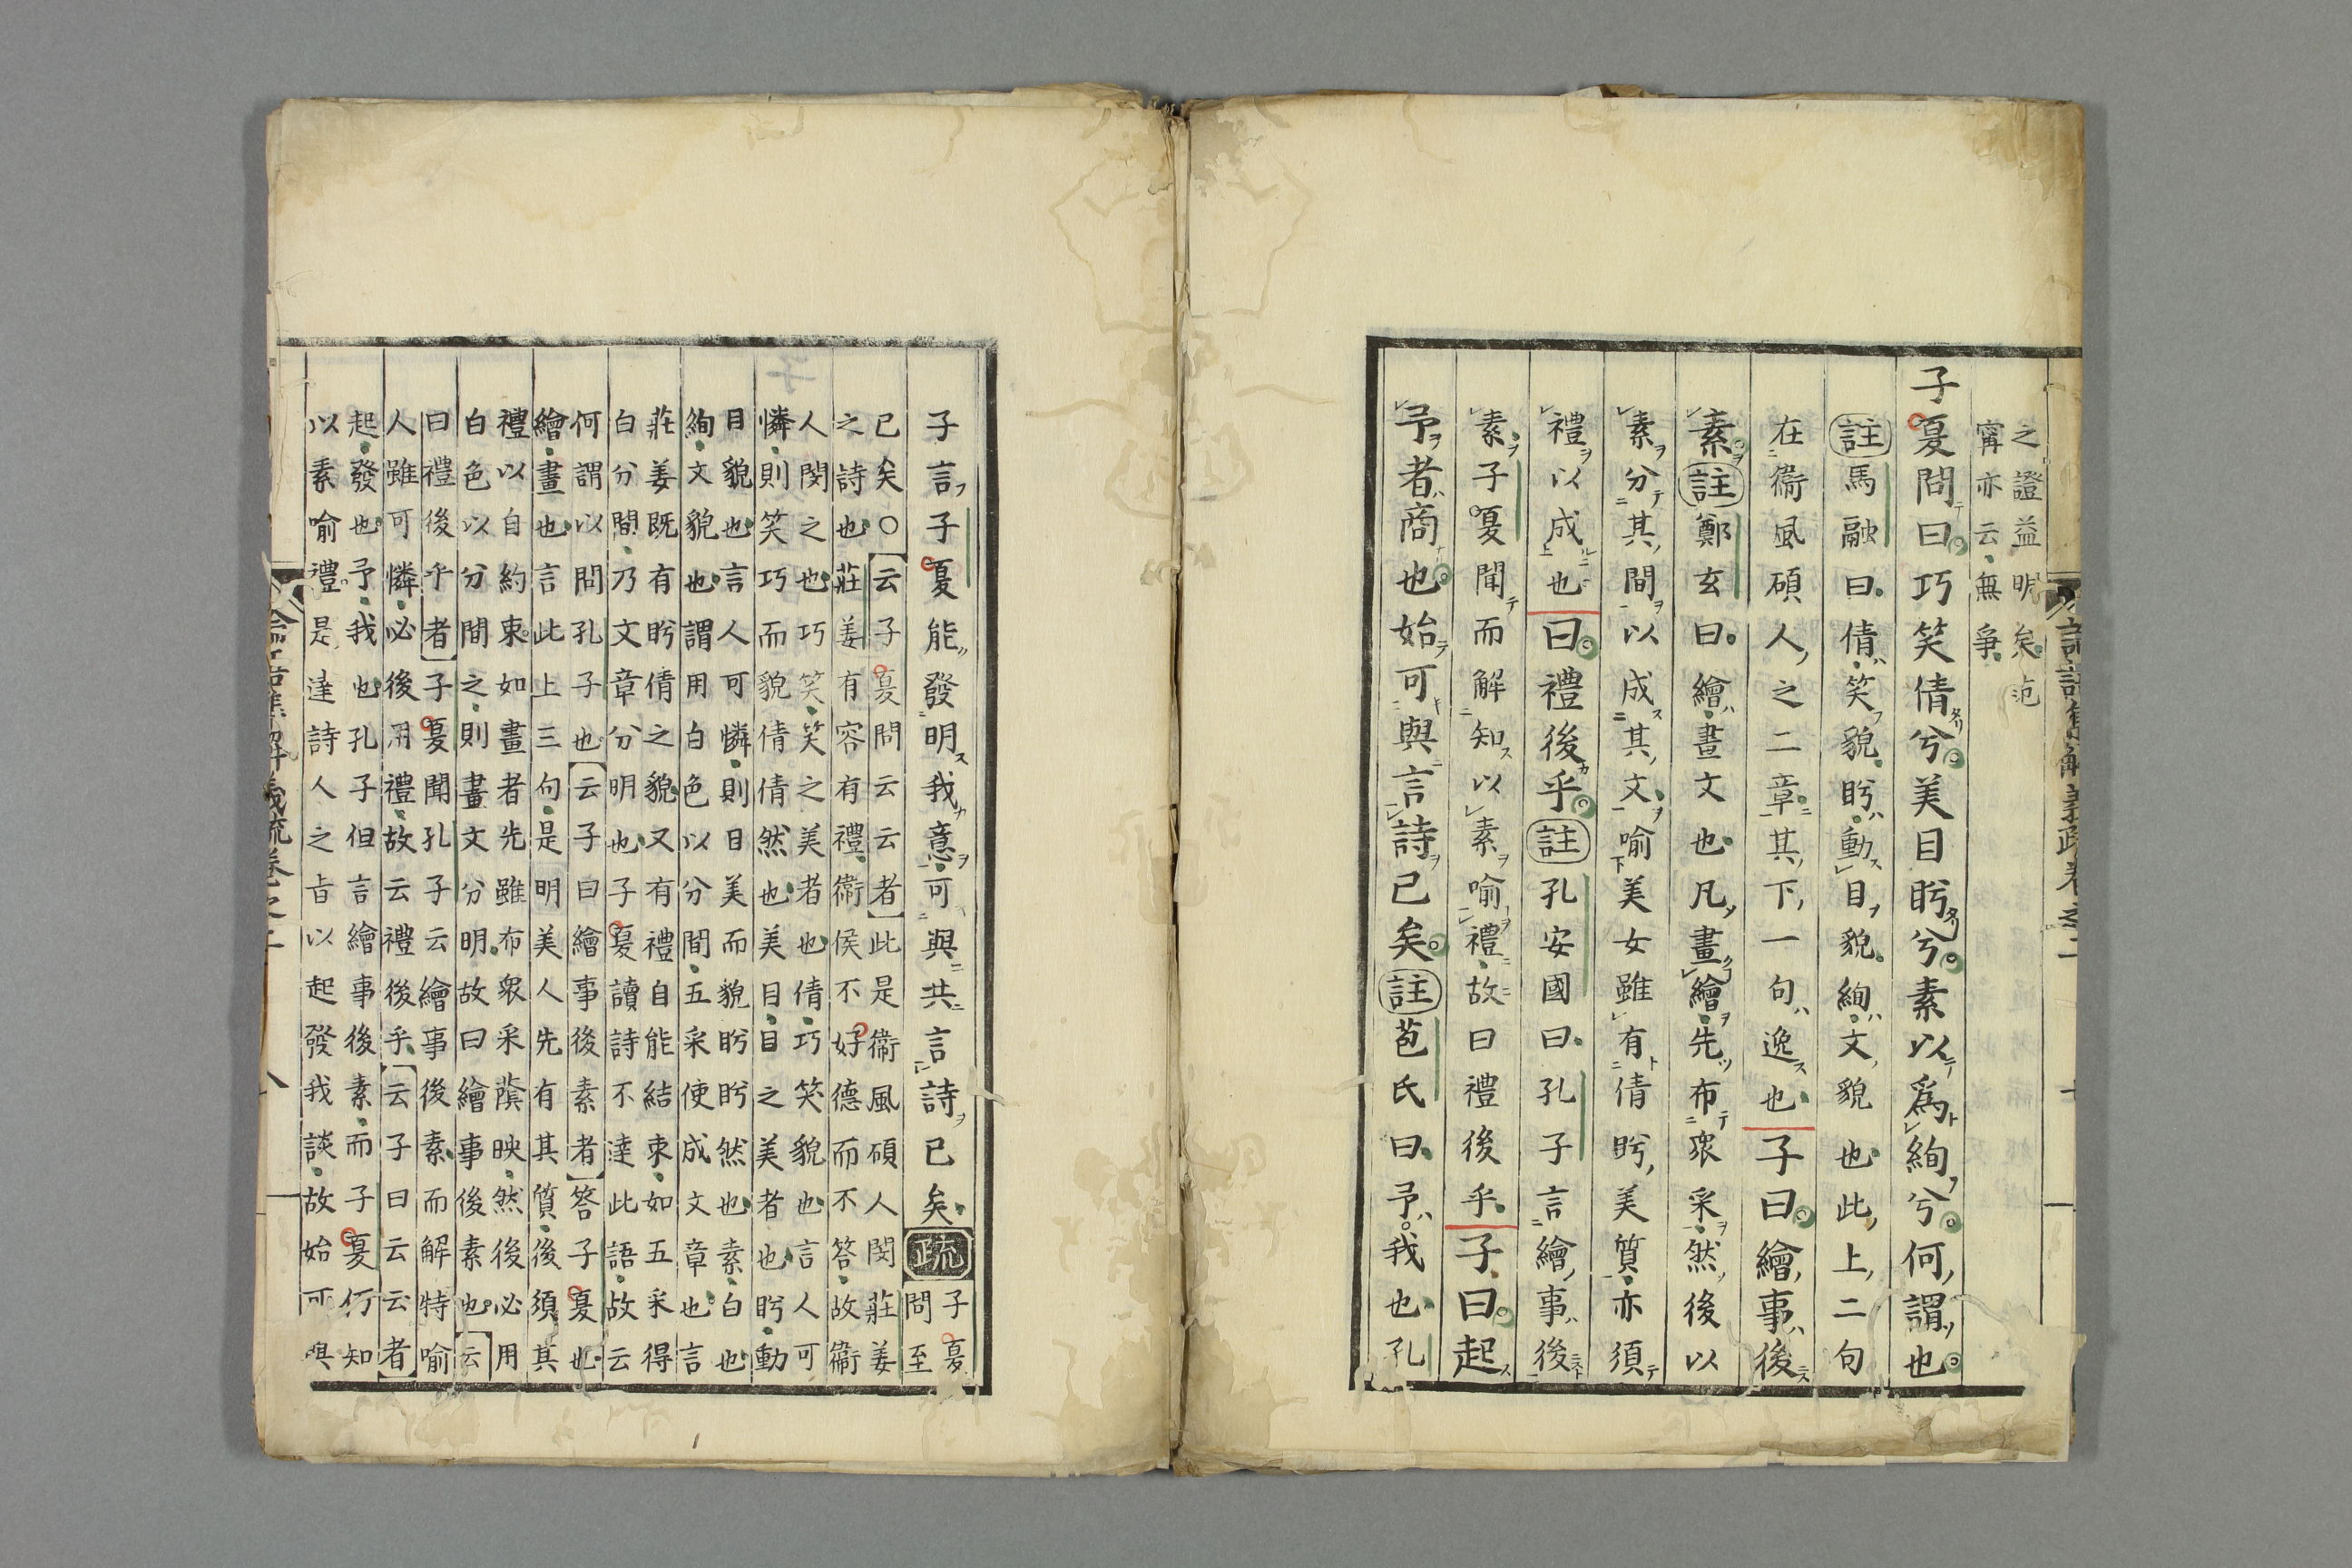 之證益明矣范
甯亦云無爭
子夏問曰巧笑倩兮美目盻兮素以爲絢兮何謂也
註馬融曰倩笑貌盻動目貌絢文貌也此上二句
在衞風碩人之二章其下一句逸也子曰繪事後
素註鄭玄曰繪畫文也凡畫繪先布衆采然後以
素分其間以成其文喻美女雖有倩盻美質亦須
禮以成也曰禮後乎註孔安國曰孔子言繪事後
素子夏聞而解知以素喻禮故曰禮後乎子曰起
予者商也始可與言詩已矣註苞氏曰予我也孔
子言子夏能發明我意可與共言詩已矣疏子夏
問至
已矣○云子夏問云云者此是衞風碩人閔莊姜
之詩也莊姜有容有禮衞侯不好德而不答故衞
人閔之也巧笑笑之美者也倩巧笑貌也言人可
憐則笑巧而貌倩倩然也美目目之美者也盻動
目貌也言人可憐則目美而貌盻盻然也素白也
絢文貌也謂用白色以分間五采使成文章也言
莊姜既有盻倩之貌又有禮自能結束如五采得
白分間乃文章分明也子夏讀詩不達此語故云
何謂以問孔子也云子曰繪事後素者答子夏也
繪畫也言此上三句是明美人先有其質後須其
禮以自約束如畫者先雖布衆采蔭映然後必用
白色以分間之則畫文分明故曰繪事後素也云
曰禮後乎者子夏聞孔子云繪事後素而解特喻
人雖可憐必後用禮故云禮後乎云子曰云云者
起發也予我也孔子但言繪事後素而子夏仃知
以素喻禮是達詩人之旨以起發我談故始可與